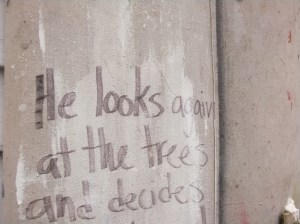 He looks again
at the trees
and decides